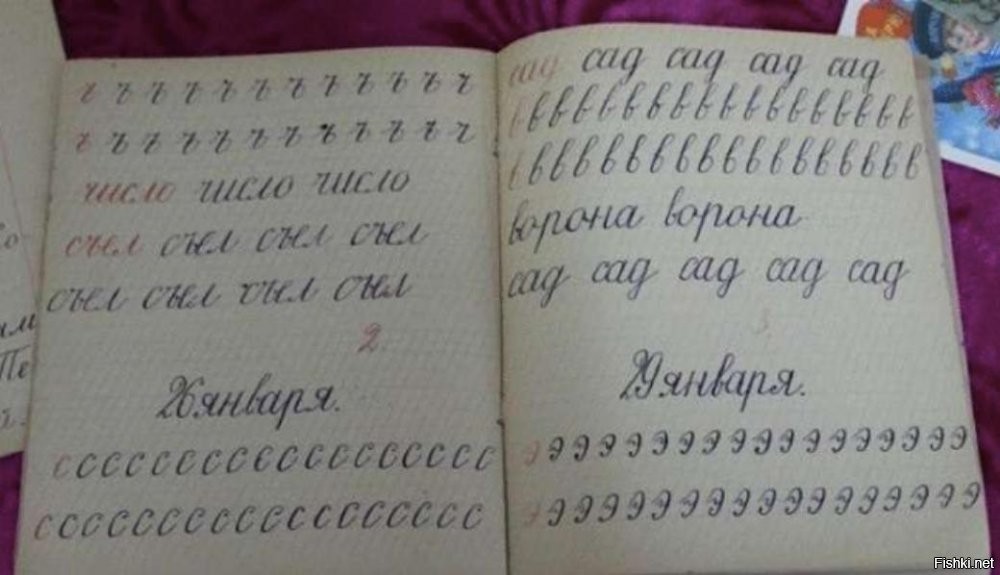 ъ ъ ъ ъ ъ ъ ъ ъ ъ ъ ъ ч
ъ ъ ъ ъ ъ ъ ъ ъ ъ ъ ъ ч
число число число
съел съел съел съел
съел съел съел съел
2
26 января.
с с с с с с с с с с с с с с с с с с
с с с с с с с с с с с с с с с с с с
сад сад сад сад сад
в в в в в в в в в в в в в в в в в
в в в в в в в в в в в в в в в в в
ворона ворона
сад сад сад сад сад
29 января.
э э э э э э э э э э э э э э э э э э
э э э э э э э э э э э э э э э э э э
Fishki.net